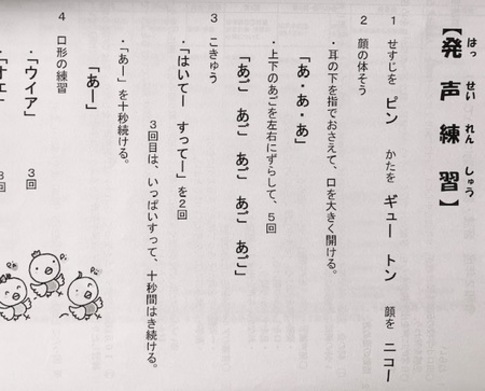 【発声練習】
はっ せい れん しゅう
1 せすじを ピン かたを ギュー トン 顔を ニコー
2 顔の体そう
・耳の下を指でおさえて、口を大きく開ける。
「あ・あ・あ」
・上下のあごを左右にずらして、5回
「あご あご あご あご あご」
3 こきゅう
・「はいてー すってー」を2回
3回目は、いっぱいすって、十秒間はき続ける。
・「あー」を十秒続ける。
「あー」
4 口形の練習
・「ウイア」 3回